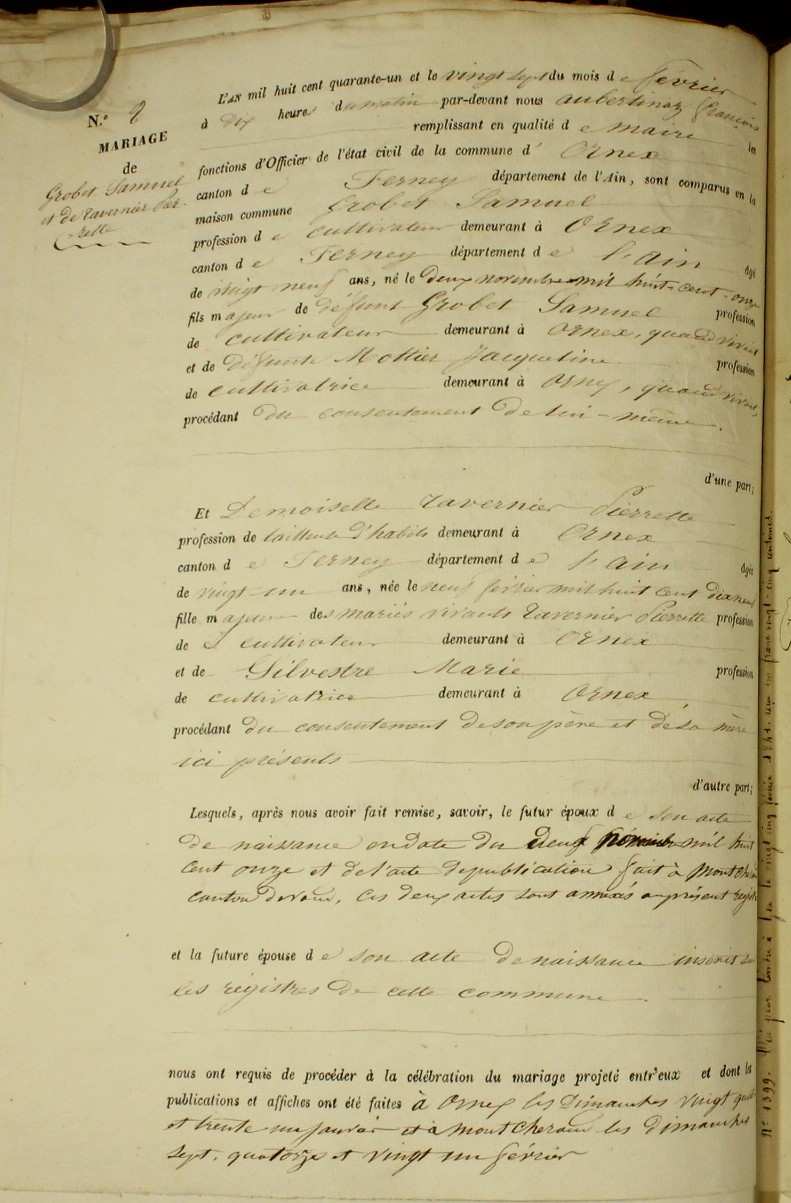 N.º 2
MARIAGE
de
Grobet Samuel
et de Tavernier Pier-
-rette
L'AN mil huit cent quarante-un et le vingt sept du mois de février
à dix heures du matin par-devant nous aubertinaz françois
remplissant en qualité de maire les
fonctions d'Officier de l'état civil de la commune d' Ornex
canton de Ferney département de l'Ain, sont comparus en la
maison commune Grobet Samuel
profession de cultivateur demeurant à Ornex
canton de Ferney département de l'ain âgé
de vingt neuf ans, né le deux novembre mil huit-cent-onze
fils majeur de défunt Grobet Samuel profession
de cultivateur demeurant à Ornex, quand vivait
et de défunte Mottier Jacqueline profession
de cultivatrice demeurant à Orny, quand vivait,
procédant du consentement de lui-même.
d'une part;
Et Demoiselle Tavernier Pierrette
profession de tailleuse d'habits demeurant à Ornex
canton de Ferney département de l'ain âgée
de vingt-un ans, née le neuf février mil huit cent dix neuf
fille majeur des mariés vivants Tavernier Pierrette profession
de cultivateur demeurant à Ornex
et de Silvestre Marie profession
de cultivatrice demeurant à Ornex
procédant du consentement de son père et de sa mère
ici présents
d'autre part;
Lesquels, après nous avoir fait remise, savoir, le futur époux de son acte
de naissance en date du deux novembre mil huit
cent onze et de l'acte de publication fait à
canton de vaud, ces deux actes sont annexés au présent
et la future épouse de son acte de naissance inscrit sur
les régistres de cette commune
nous ont requis de procéder à la célébration du mariage projeté entr'eux et dont les
publications et affiches ont été faites à Ornex les Dimanches vingt quatre
et trente un janvier et à montcherand les dimanches
sept, quatorze et vingt un février
N° 1399.